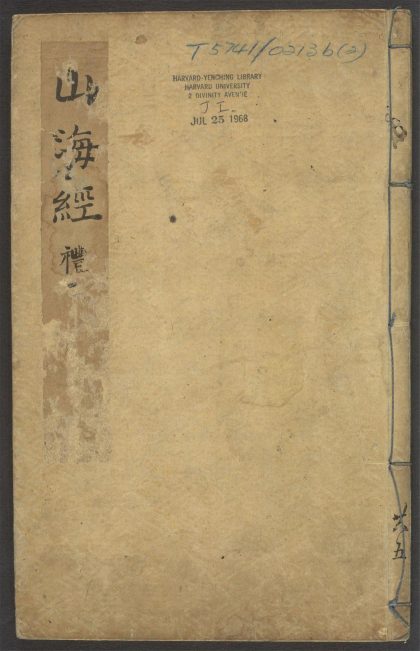 T5741/0213b(2)
HARVARD-YENCHING LIBRARY
HARVARD UNIVERSITY
2 DIVINITY AVENUE
JUL 25 1968
山海經
禮
共五